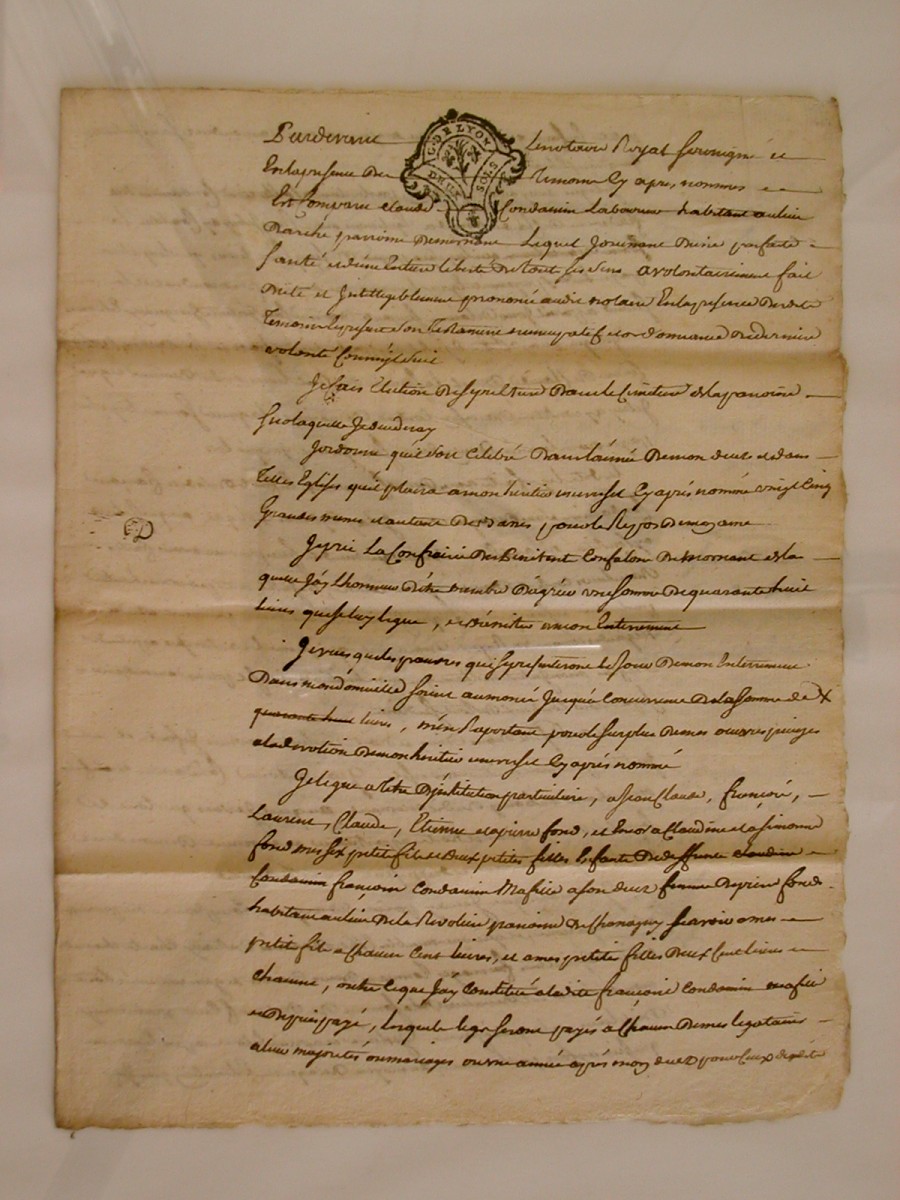 Pardevant Le notaire Royal soussigné et
G. DE LYON
DEUX SOLS
En la presence des temoins cy apres nommés
Est comparu claude Condamin Laboureur habitant au lieu
Marché parroisse de mornant Lequel Jouissant d'une parfaite
santé et d'une Entiere liberté de tout ses sens a volontairement fait
Dicté et Intelligiblement prononcé audit notaire En la presence desdits
temoins le present son testament nuncupatif et ordonnance de derniere
volonté comm'il suit
Je fais Election de sepulture Dans le Cimetiere de la parroisse
sur laquelle Je decederay
J'ordonne qu'il soit celebré Dans l'année De mon deces et dans
telles Eglises qu'il plaira a mon heritier universel Cy après nommé vingt Cinq
Grandes messes et autant De basses pour le Repos de mon ame
Je prie La Confrairie Des Penitents Confalons De Mornant de la
quelle J'ay L'honneur d'être membre D'agréer une somme De quarante huit
livres que je luy legue, et d'assister a mon Enterrement
Je veux que les pauvres qui se presenteront le Jour De mon Enterrement
Dans mon domicille soient aumonés Jusqu'a Concurrence De la somme de X
quarante huit livres, m'en Raportant pour le surplus De mes oeuvres pieuses
a la devotion De mon heritier universel Cy après nommé
Je legue a titre D'institution particuliere, a Jean Claude, françois,
Laurent, Claude, Etienne et pierre fond, et Encor a Claudine et a Simonne
fond mes six petits fils et Deux petites filles Enfants De deffunte Claudine
Condamin françoise Condamin Ma fille a son deces femme De pierre fond
habitant au lieu De la Rivoliere parroisse De Chassagny sçavoir a mes
petits fils a Chacun Cent livres, et a mes petites filles Deux Cent livres a
chacune, outre Ce que J'ay Constitué a la dite françoise Condamin ma fille
et Depuis payé, lesquels legs seront payés a Chacun De mes legataires
a leur majorités ou mariages ou une année après mon deces pour Ceux